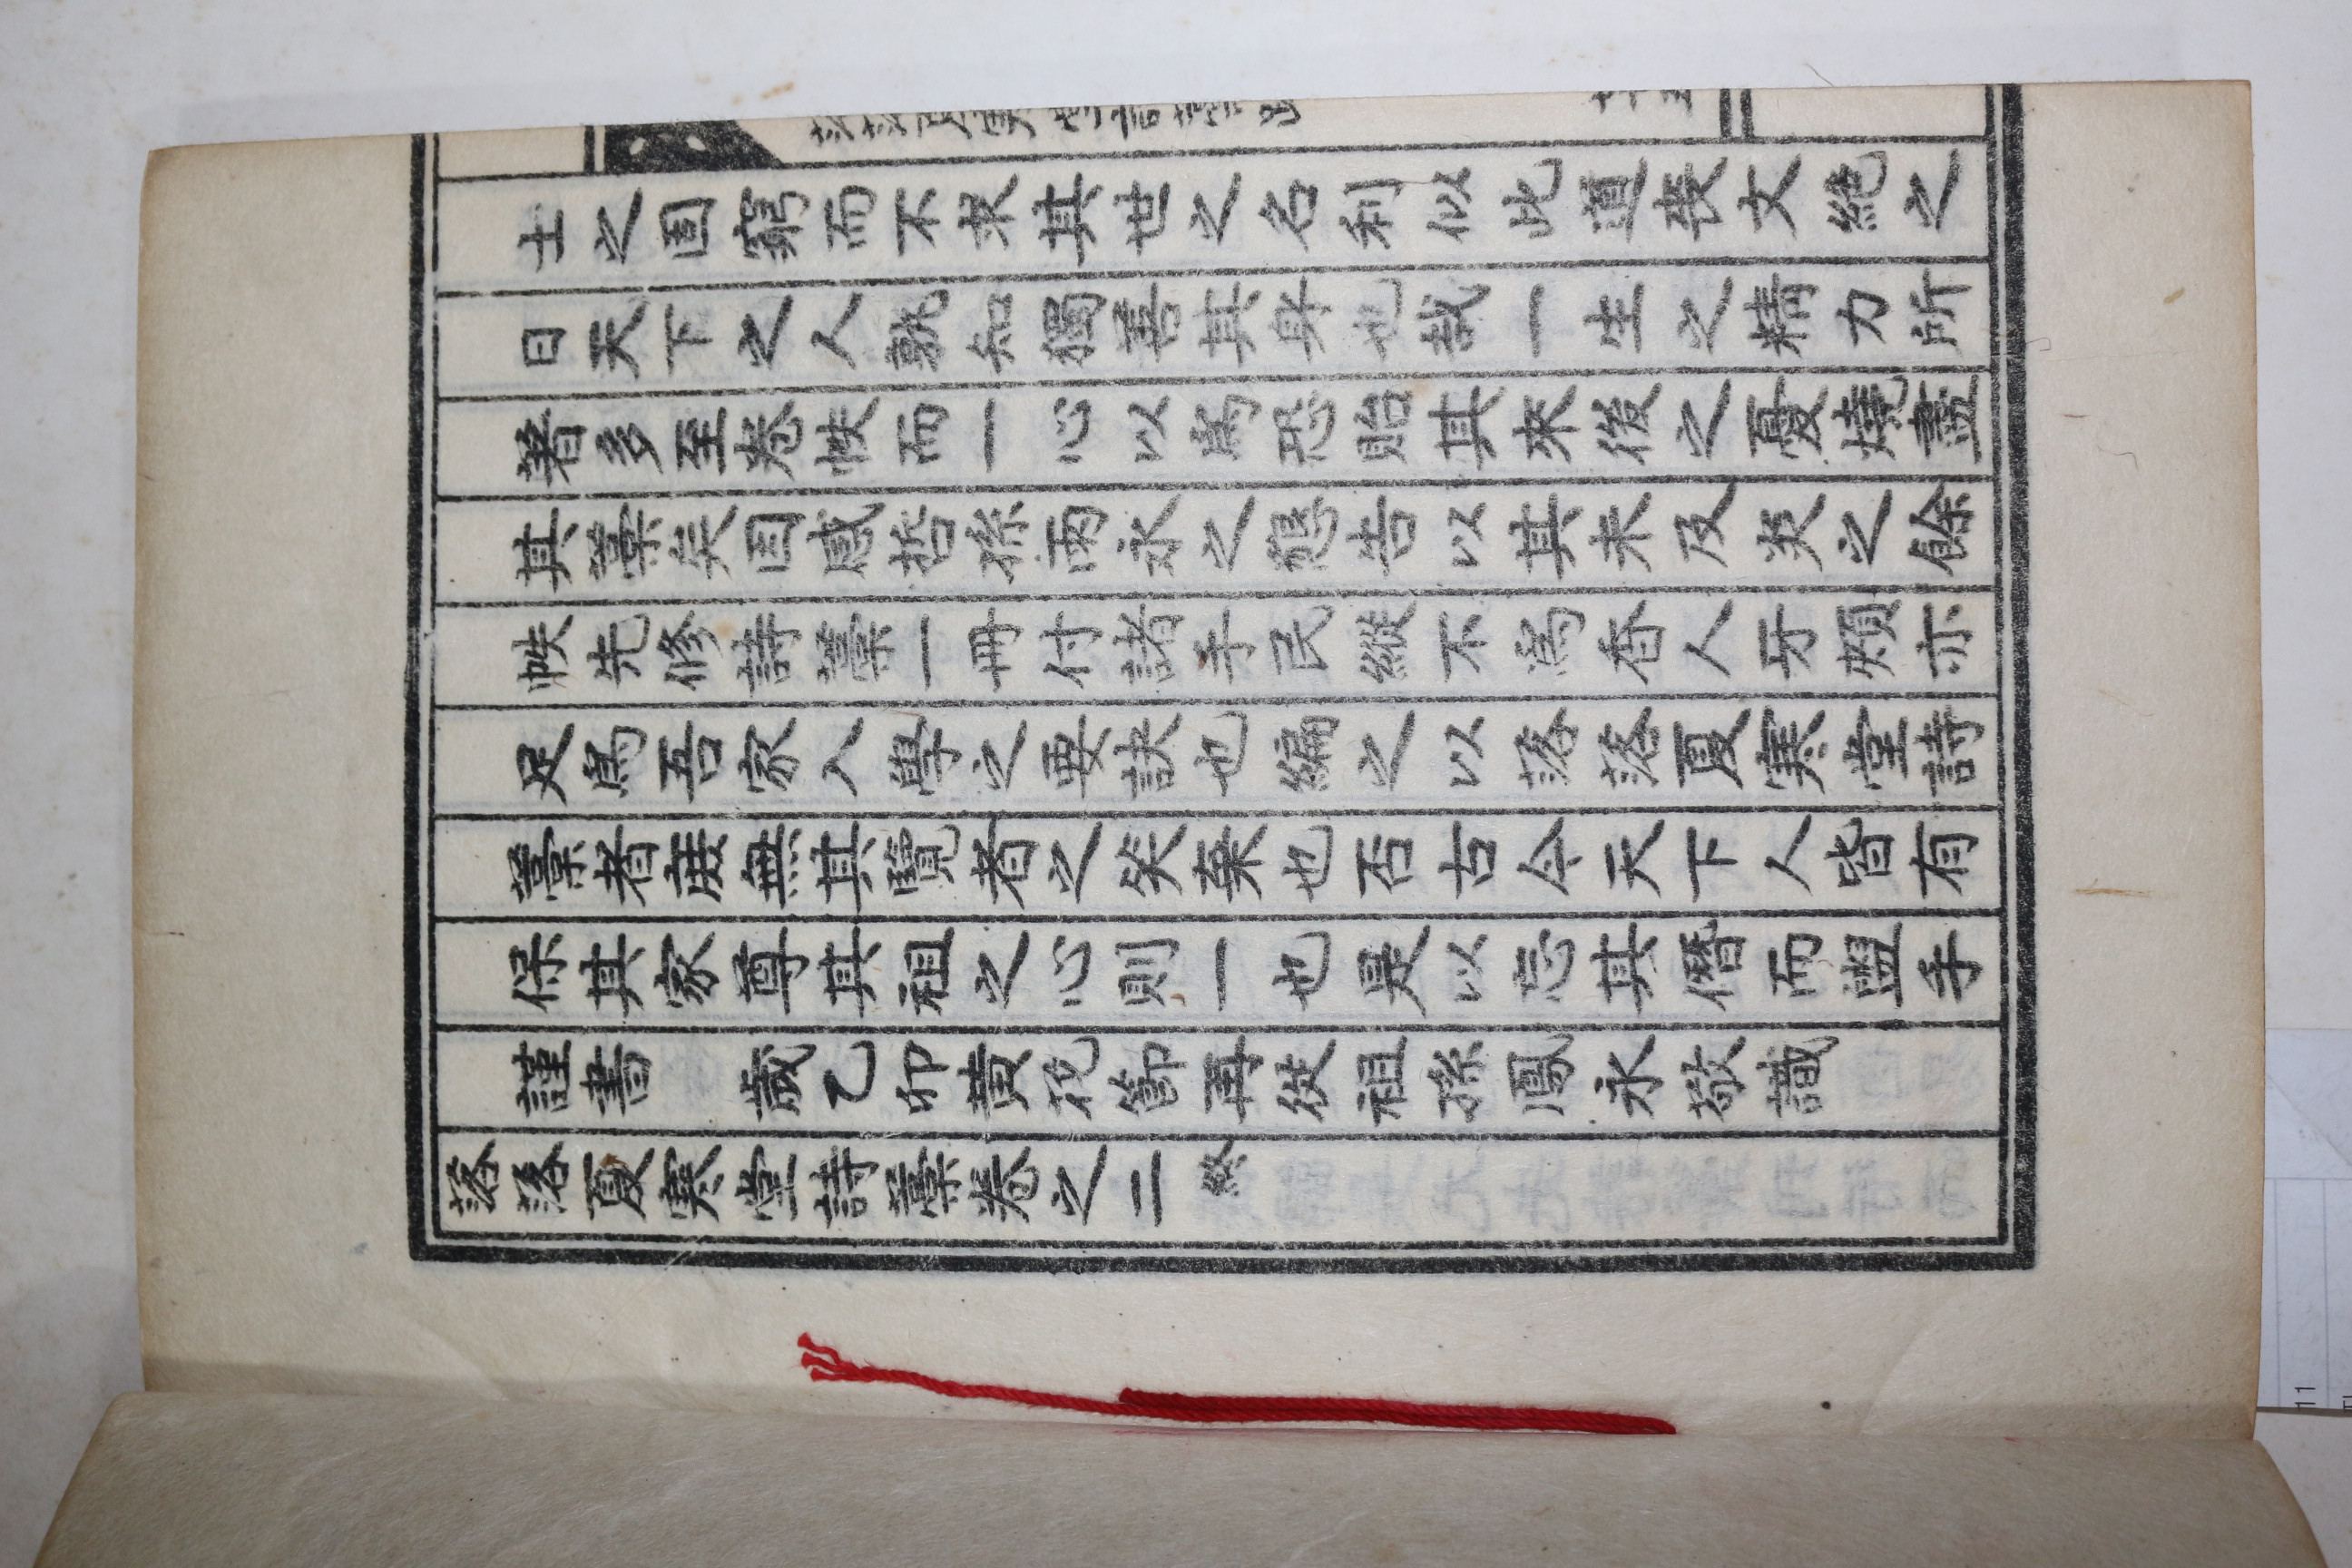 士之固窮而不求其世之名利似此道喪文絶之
日天下之人孰如獨善其身也哉一生之精力所
著多至卷帙而一心以爲恐貽其來後之憂燒盡
其藁矣因感哲孫丙永之懇告以其未及災之餘
帙先修詩藁一冊付諸手民縱不爲香人牙頰亦
足爲吾家人學之要訣也編之以落落夏寒堂詩
藁者庶無其覽者之笑棄也否古今天下人皆有
保其家尊其祖之心則一也是以忘其僭而盥手
謹書 歲乙卯黃花節再從祖孫鳳永敬識
落落夏寒堂詩藁卷之二 終